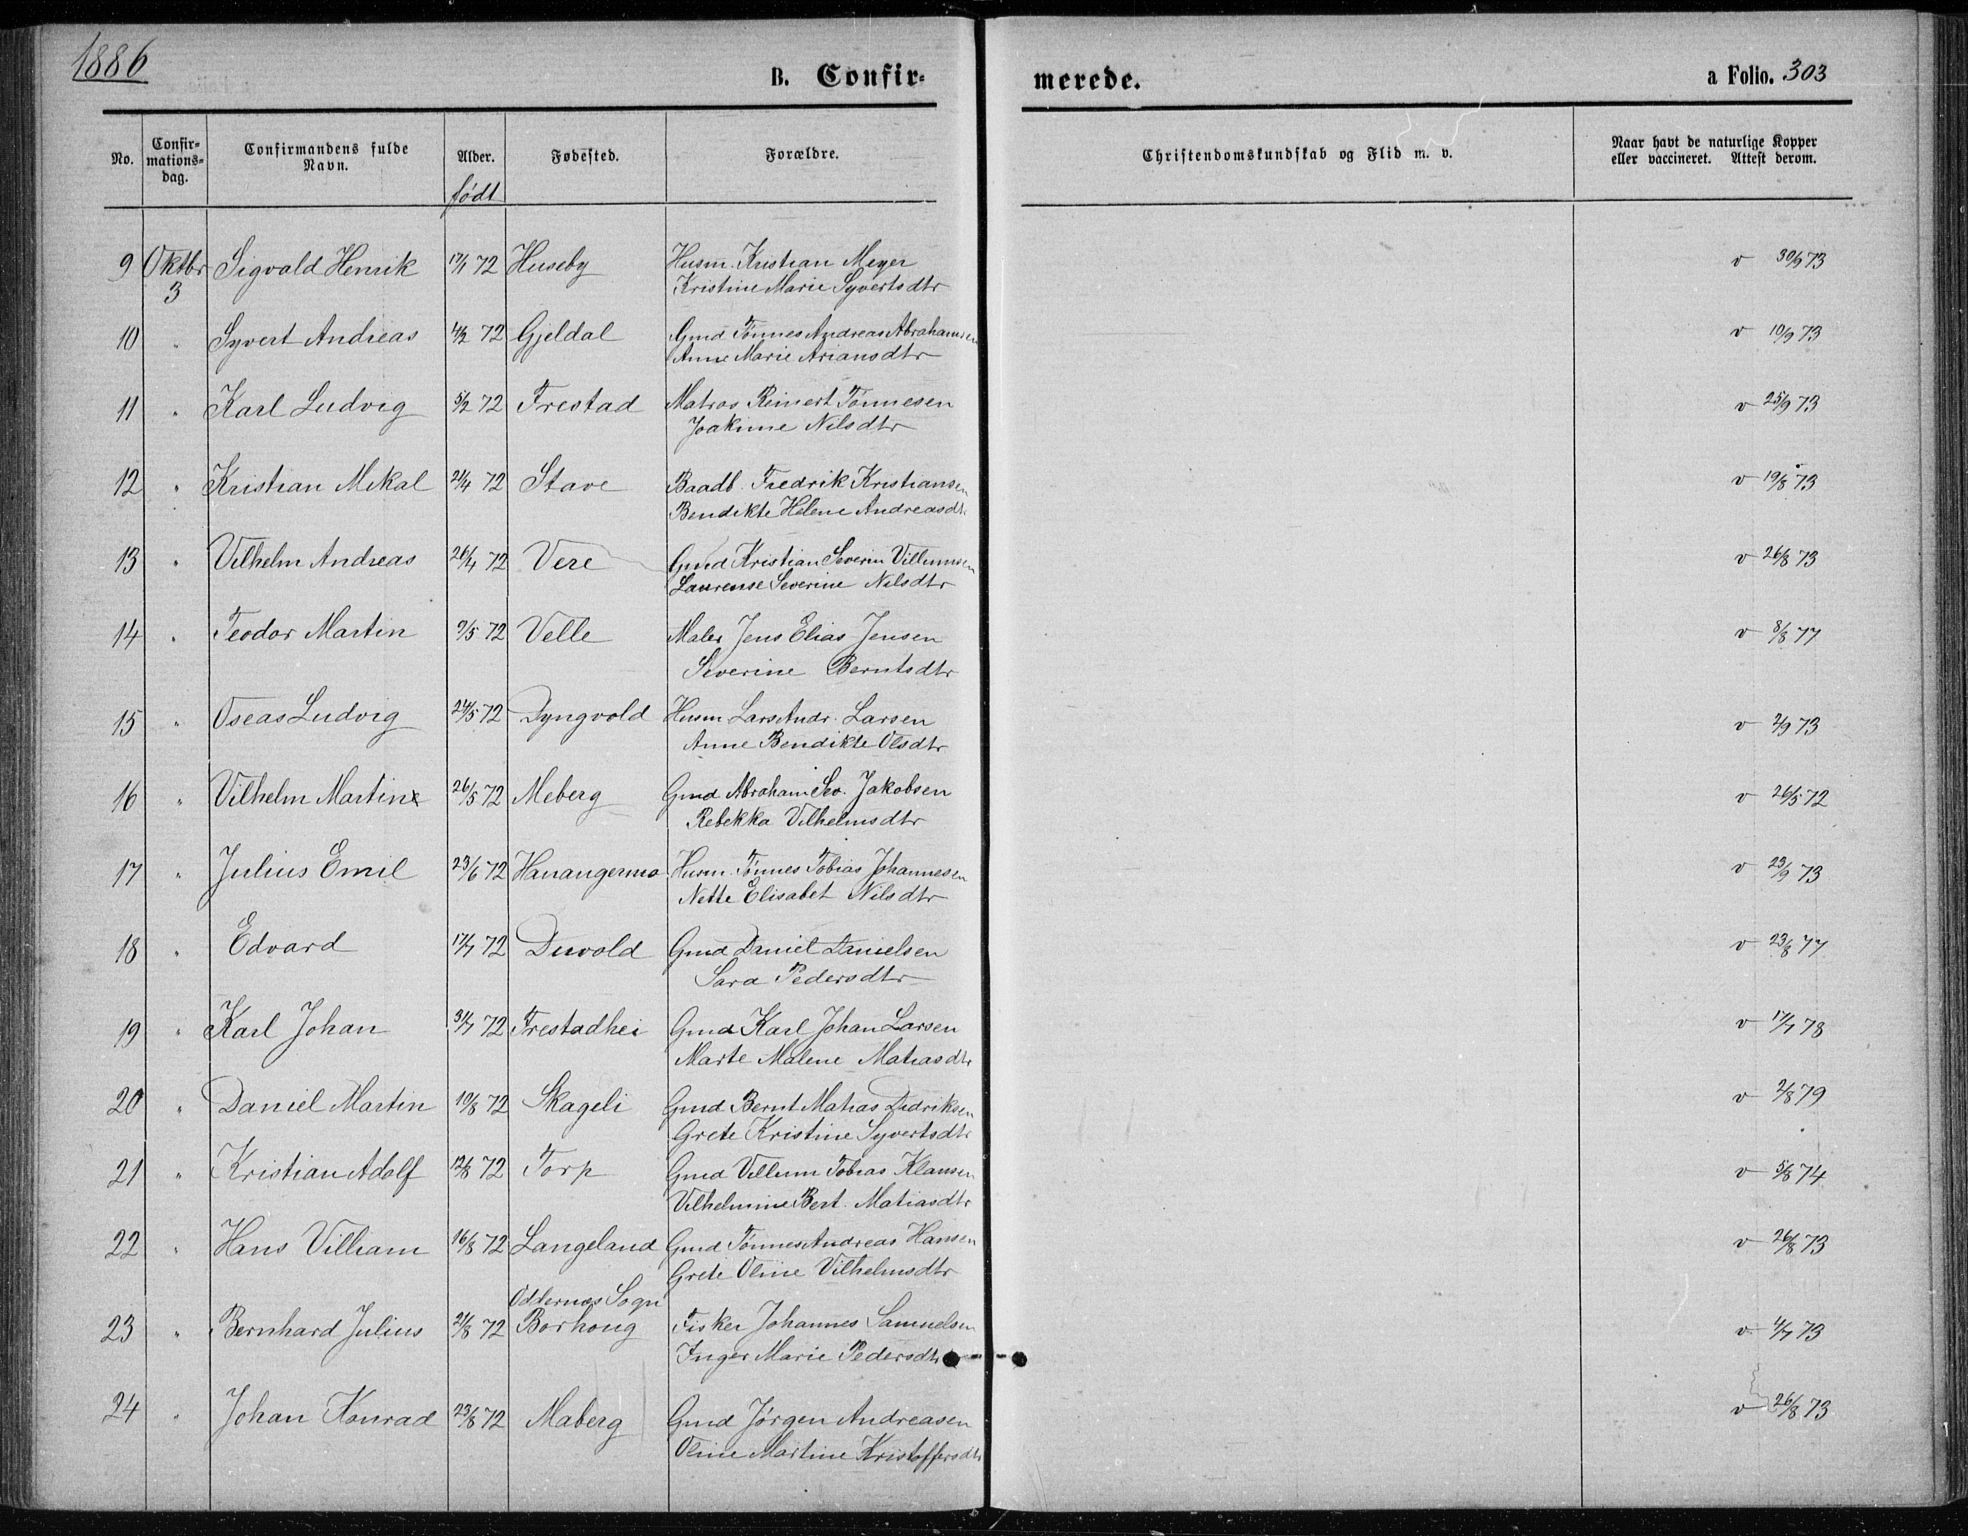 1886
B. Confir-
merede.
a Folio. 303
No.
Confir-
mations-
dag.
Confirmandens fulde
Navn.
Alder.
født
Fødested.
Forældre.
Christendomskundskab og Flid m. v.
Naar havt de naturlige Kopper
eller vaccineret. Attest derom.
9 Oktbr Sigvald Henrik 17/1 72 Huseby Husm. Kristian Meyer v 30/9 73
3 Kristine Marie Syvertsdtr
10 " Syvert Andreas 4/2 72 Gjeldal Gmd Tønnes Andreas Abrahamsen v 10/9 73
Anne Marie Ariansdtr
11 " Karl Ludvig 5/2 72 Frestad Matros Reinert Tønnesen v 25/9 73
Joakime Nilsdtr
12 " Kristian Mikal 21/4 72 Stave Baadb. Fredrik Kristiansen v 19/8 73
Bendikte Helene Andreasdtr
13 " Vilhelm Andreas 26/4 72 Vere Gmd Kristian Severin Villumsen v 26/8 73
Laurense Severine Nilsdtr
14 " Teodor Martin 9/5 72 Velle Maler Jens Elias Jensen v 8/8 77
Severine Berntsdtr
15 " Oseas Ludvig 24/5 72 Dyngvold Husm Lars Andr. Larsen v 2/9 73
Anne Bendikte Olsdtr
16 " Vilhelm Martin 26/5 72 Meberg Gmd Abraham Sev. Jakobsen v 26/5 72
Rebekka Vilhelmsdtr
17 " Julius Emil 23/6 72 Hanangermo Husm. Tønnes Tobias Johannesen v 23/9 73
Nette Elisabet Nilsdtr
18 " Edvard 17/7 72 Duvold Gmd Daniel Danielsen v 23/8 77
Sara Pedersdtr
19 " Karl Johan 31/7 72 Frestadhei Gmd Karl Johan Larsen v 17/7 78
Marte Malene Matiasdtr
20 " Daniel Martin 10/8 72 Skageli Gmd Bernt Matias Didriksen v 2/8 79
Grete Kristine Syvertsdtr
21 " Kristian Adolf 12/8 72 Torp Gmd Villum Tobias Klausen v 5/8 74
Vilhelmine Bert. Matiasdtr
22 " Hans Villiam 16/8 72 Langeland Gmd Tønnes Andreas Hansen v 26/8 73
Grete Oline Vilhelmsdtr
Oddernæs Sogn
23 " Bernhard Julius 21/8 72 Borhoug Fisker Johannes Samuelsen v 4/7 73
Inger Marie Pedersdtr
24 " Johan Konrad 23/8 72 Maberg Gmd Jørgen Andreasen v 26/8 73
Oline Martine Kristoffersdtr